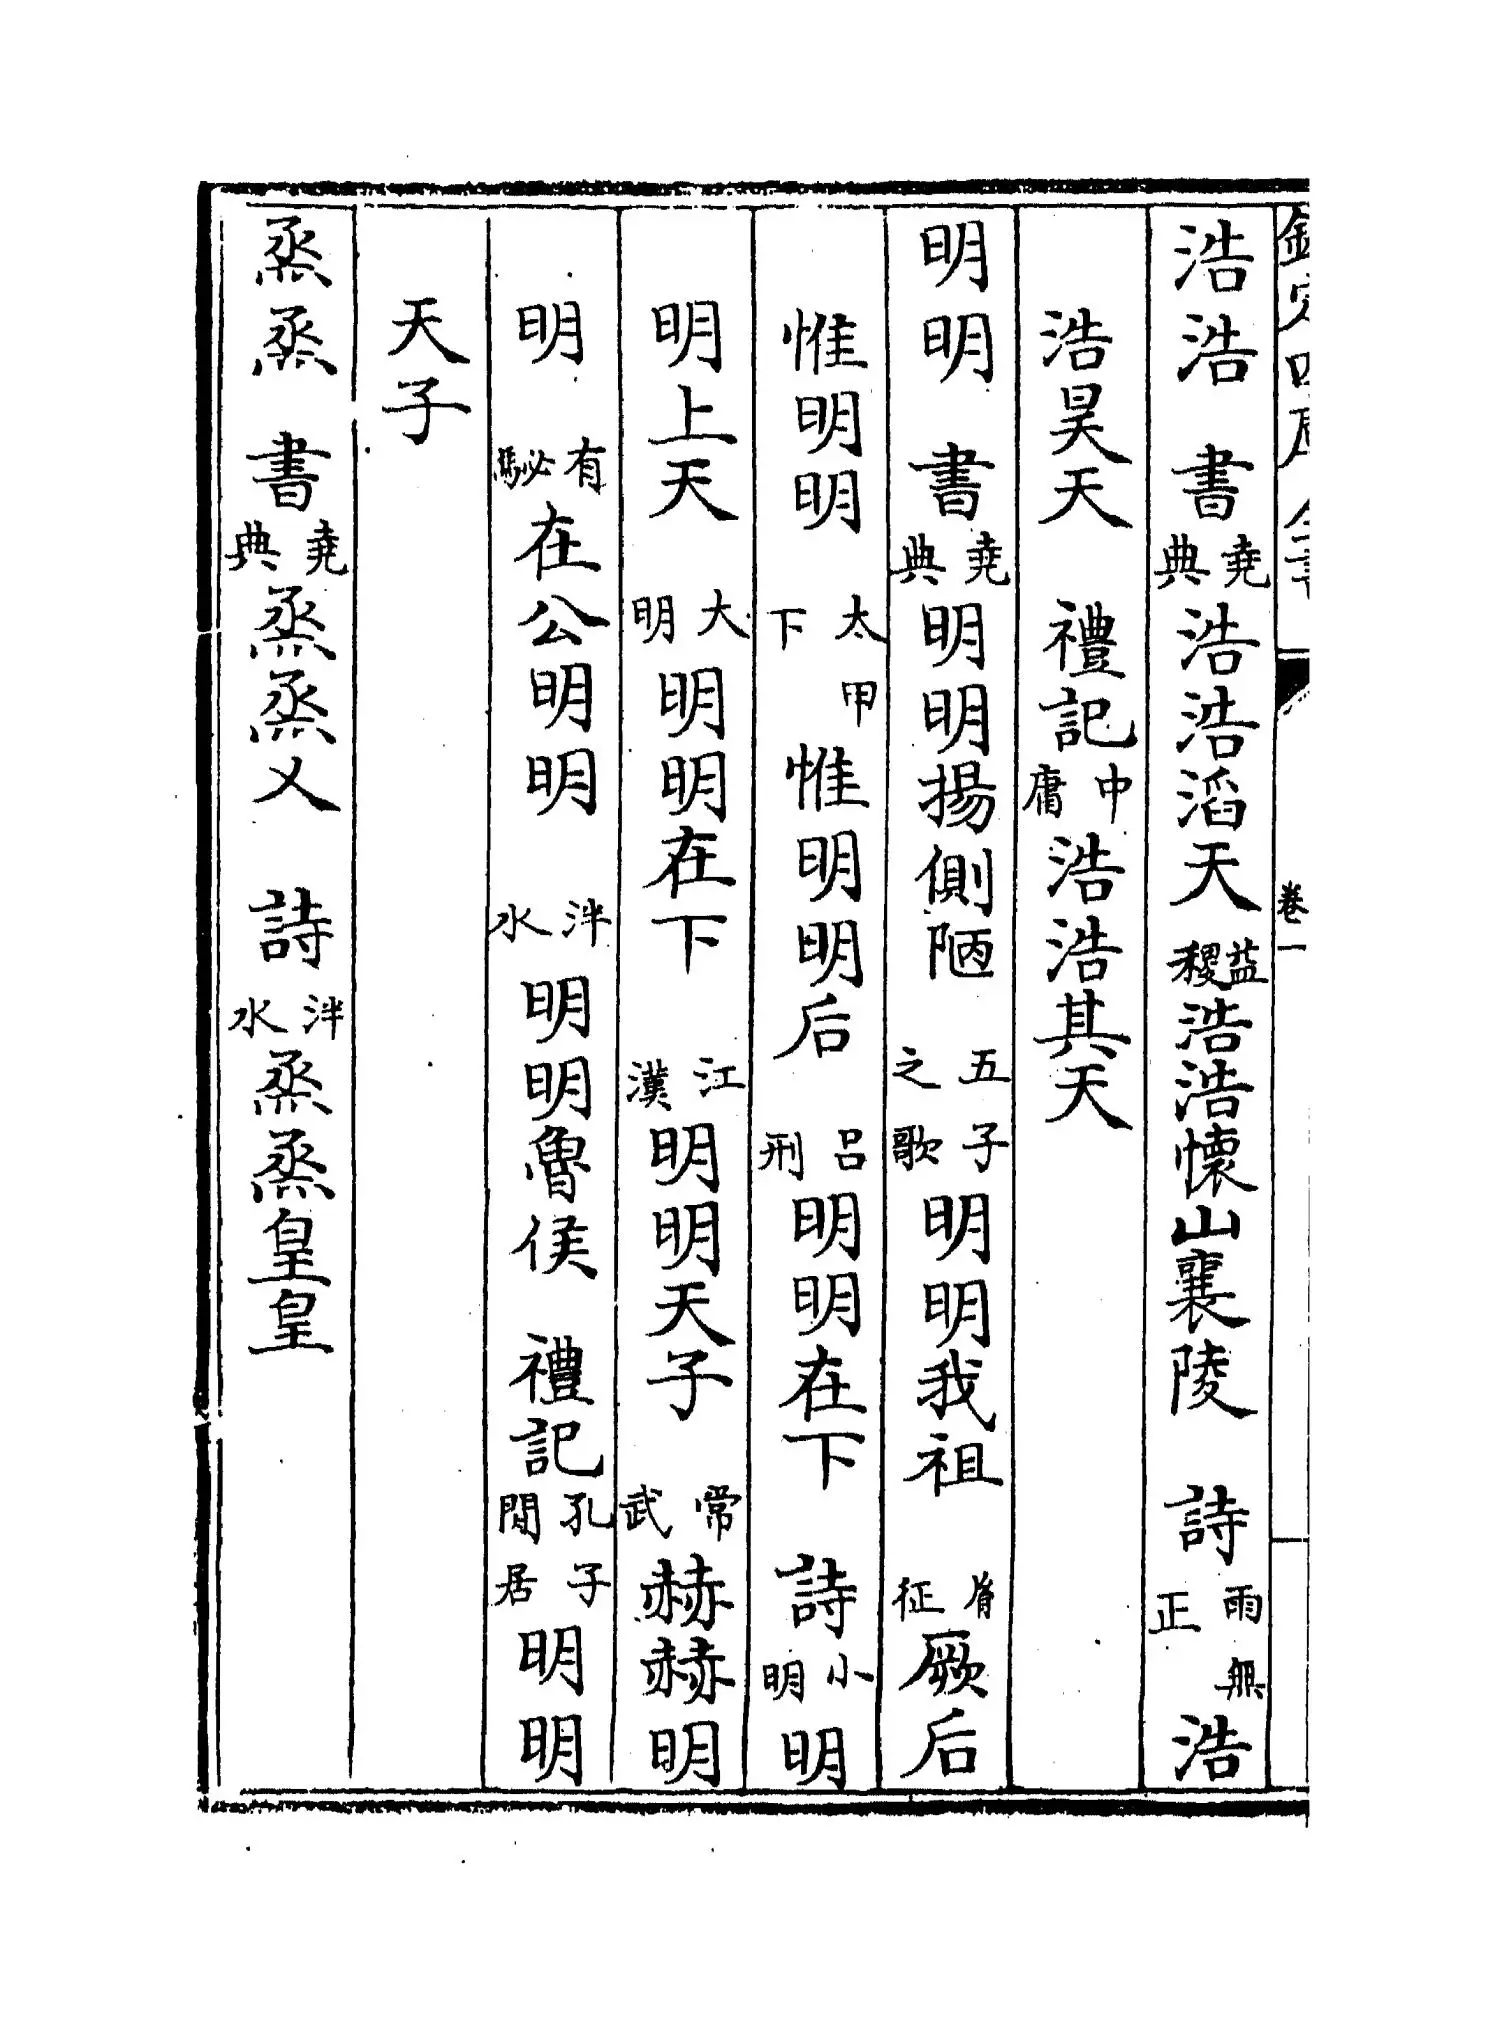 欽定四庫全書 卷一
浩浩 書堯典浩浩滔天 益稷浩浩懷山襄陵 詩雨無正浩
浩昊天 禮記中庸浩浩其天
明明 書堯典明明揚側陋 五子之歌明明我祖 胤征厥后
惟明明 太甲下惟明明后 呂刑明明在下 詩小明明
明上天 大明明明在下 江漢明明天子 常武赫赫明
明 有駜在公明明 泮水明明魯侯 禮記孔子閒居明明
天子
烝烝 書堯典烝烝乂 詩泮水烝烝皇皇